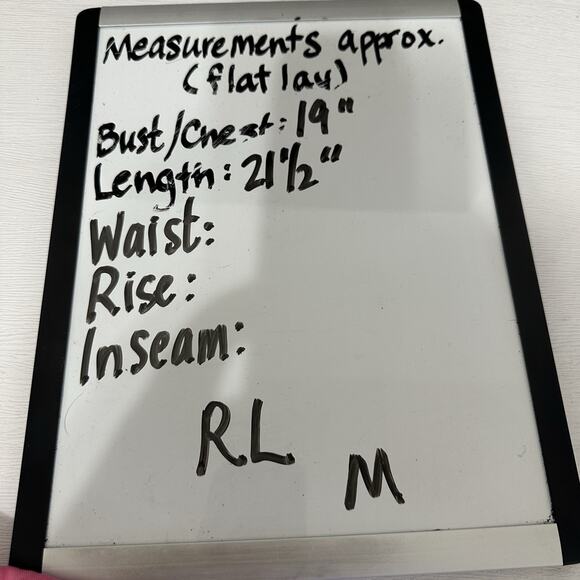 Measurements approx.
(flat lay)
Bust/Chest: 19"
Length: 21 1/2"
Waist:
Rise:
Inseam:
RL
M